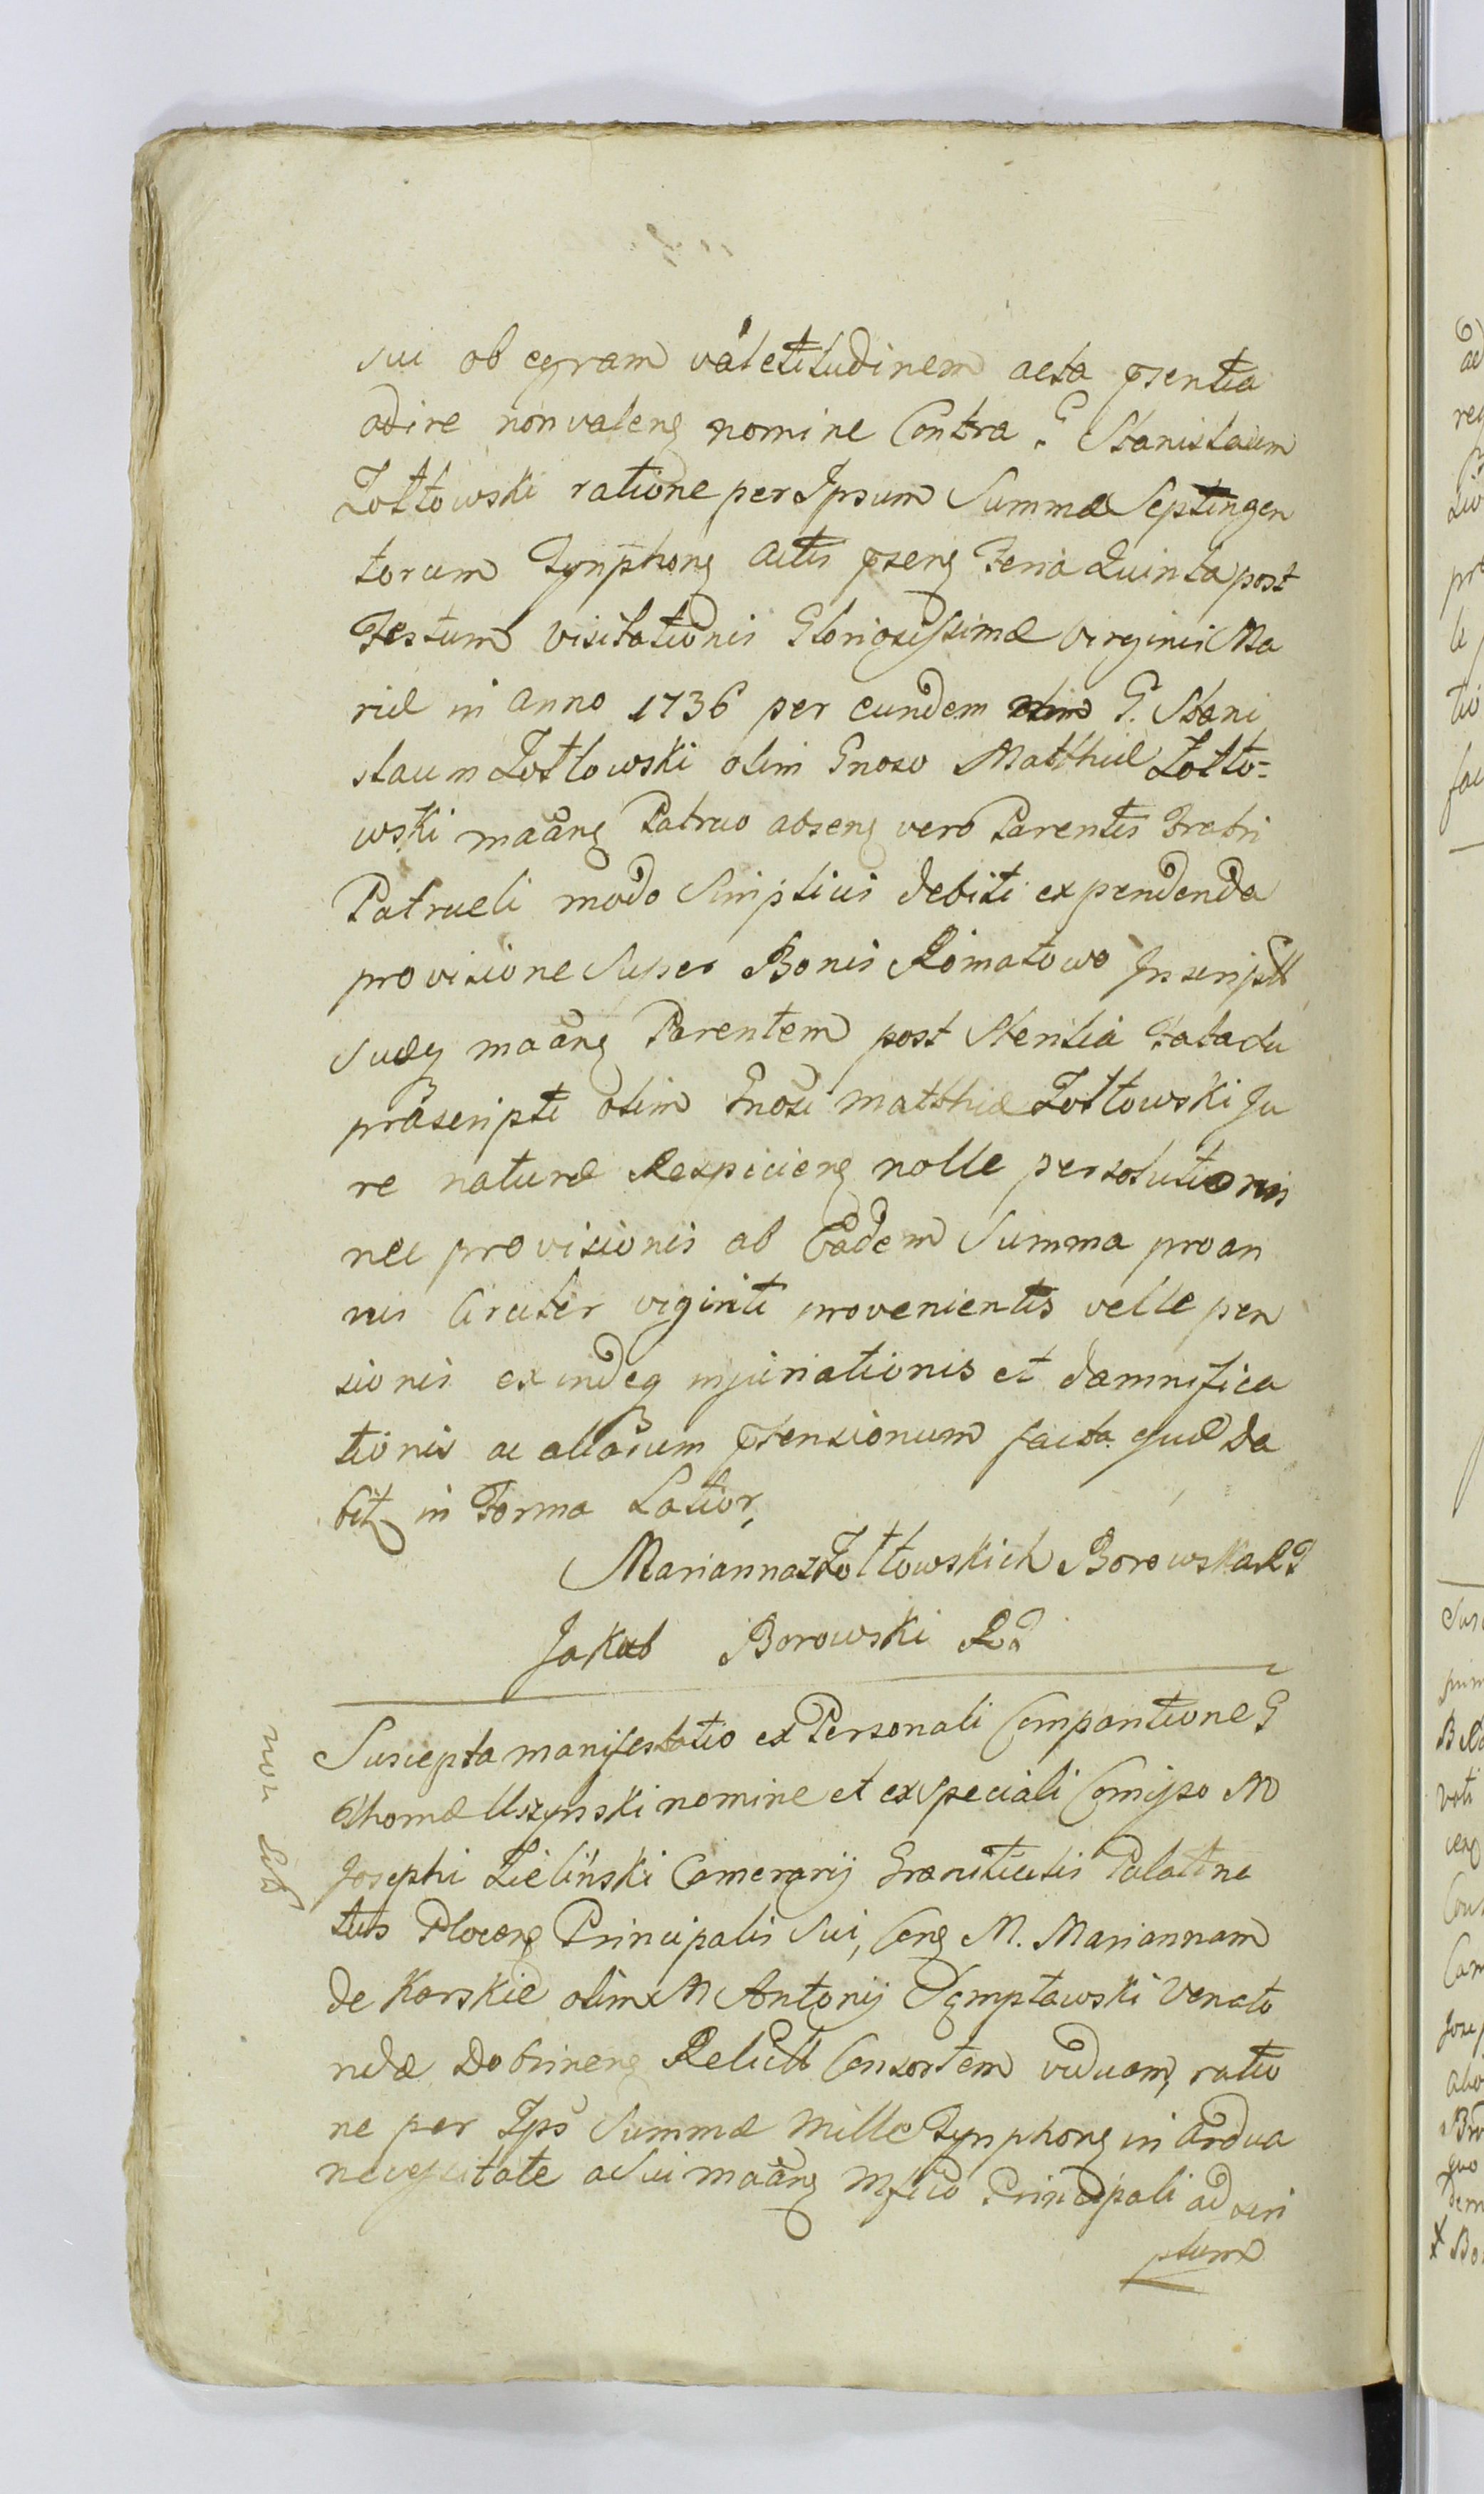 sui ob egram valetitudinem acta pſentia
adire non valeng nomine Contra G Stanislaum
Żołtowski ratione per Ipsum Summæ Septingen
torum Tynphong actis pſeng Feria Quinta post
Festum Visitationis Gloriosissimæ Virginis Ma
riæ in anno 1736 per eundem G. Stani
slaum Żołtowski olim Gnoso Matthiæ Żołto=
wski maang Patruo abseng vero Parentis Fratri
Patrueli modo Simplicis debiti expendenda
provisione Super Bonis Romatowo Inscriptt
Sueq maang Parentem post Sterilia Fata du
præscripti olim Gnosi Matthiæ Żołtowski Ju
re naturæ Respicieng nolle persolutionis
nec provisionis ab Eadem Summa pro an
nis Circiter viginti provenientis velle pen
sionis exindeq injuriationis et damnifica
tionis ac aliarum pſtensionum facta quæ da
bit in Forma Latior,
Marianna z Żołtowskich Borowska RP
Jakub Borowski Rd
non Sol
Suscepta manifestatio ex Personali Comparitione G
Thomæ Uszynski nomine et ex Speciali Comisso M
Josephi Zieliński Camerarij Granitialis Palatina
tus Ploceng Principalis Sui, Ceng M. Mariannam
de Karskie olim M Antonij Dęmptawski Venato
ridæ Dobrineng Relictt Consortem viduam, ratio
ne per Ips Summæ Mille Tynphong in ardua
necessitate a Sui maang Mfico Principali ad scri
ptum